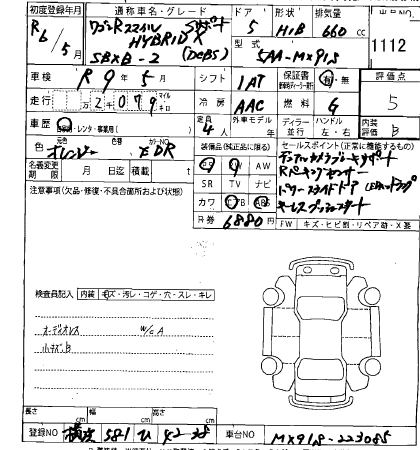 初度登録年月 通称車名・グレード ドア 形状 排気量 出品NO
R6/5月 ワゴンRスマイル HYBRID X 5 H/B 660cc 1112
SBXB-2 (DCBS) 型式 5AA-MX91S
車検 R9年5月 シフト IAT 保証書 有・無 評価点
走行 2万2079 マイル キロ 冷房 AAC 燃料 G 5
車歴 自家用・レンタ・事業用( ) 定員 4人 外車モデル 年 ディーラー 並行 ハンドル 左・右 内装評価 B
色 オレンジ 色替 カラーNO
名義変更期限 月 日迄 積載 t
装備品(純正品に限る) セールスポイント(正常に機能するもの)
PS PW AW デュアルカメラブレーキサポート
SR TV ナビ Rパーキングセンサー
カワ エアB ABS パワースライドドア LEDヘッドランプ
R券 6880円 キーレスプッシュスタート
注意事項(欠品・修復・不具合箇所および状態)
FW キズ・ヒビ割・リペア跡・X要
検査員記入 内装 キズ・汚レ・コゲ・穴・スレ・キレ
オーディオレス W/CA
小キズB
長さ cm 幅 cm 高さ cm
登録NO 581 42-38 車台NO MX91S-223085